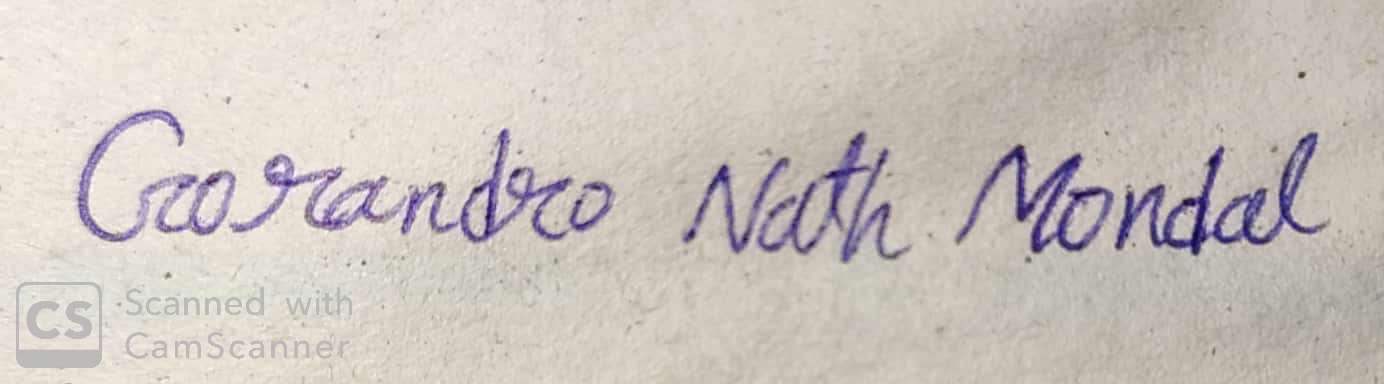 Gorandro Nath Mondal
CS Scanned with
CamScanner